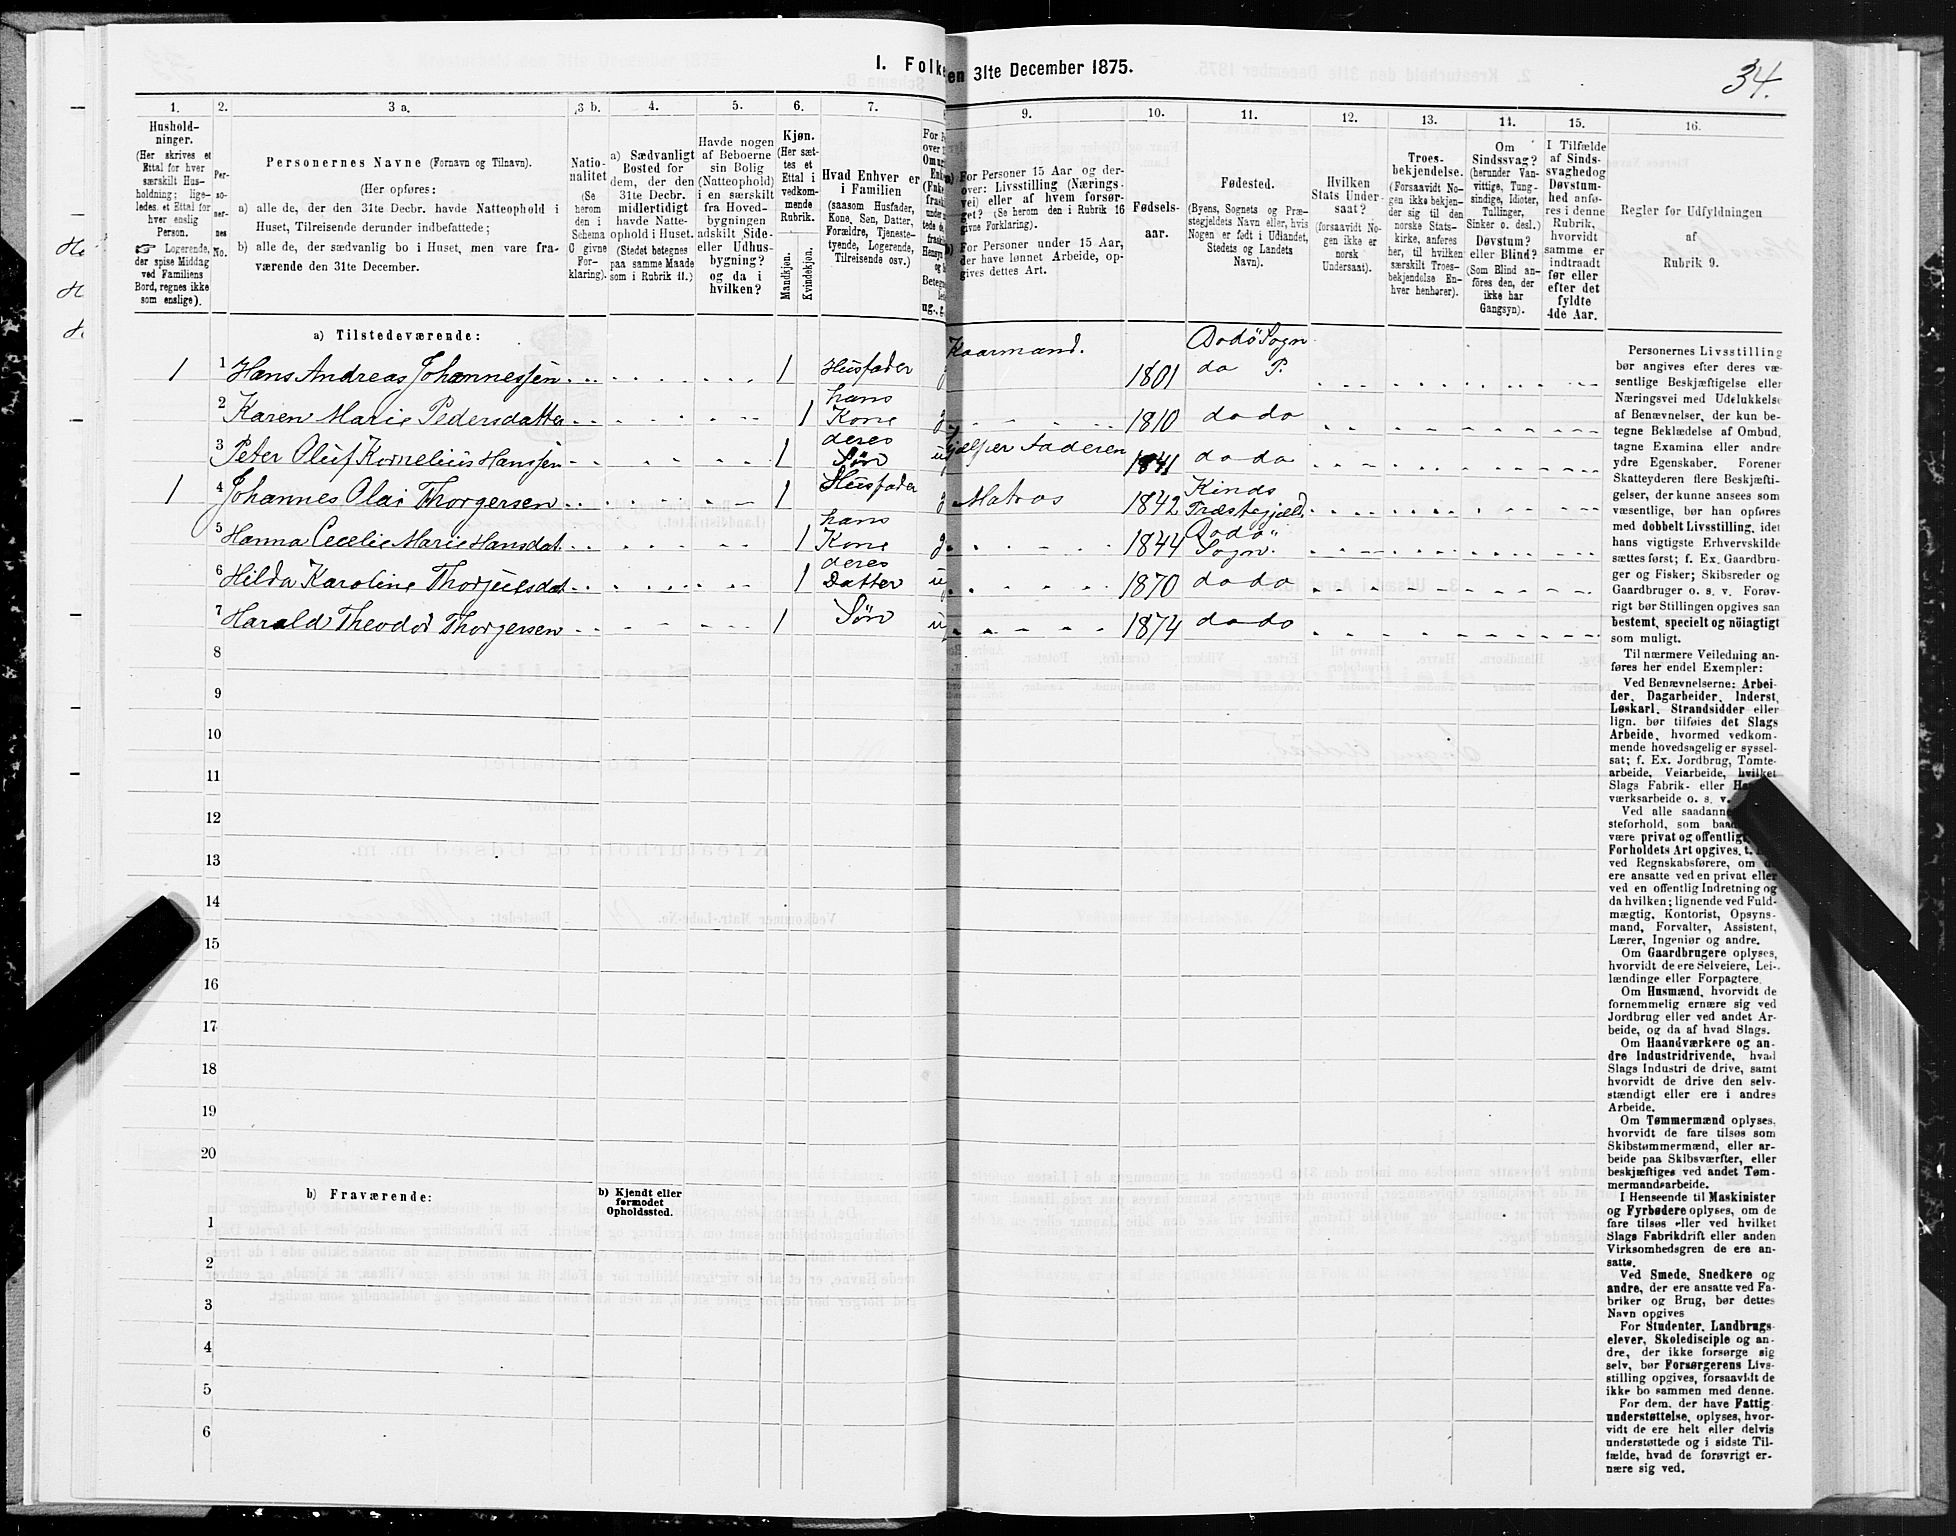 I. Folke
en 31te December 1875.
34.
1.
2.
3 a.
3 b.
4.
5.
6.
7.
9.
10.
11.
12.
13.
14.
15.
16.
Hushold-
ninger.
(Her skrives et
Ettal for hver
særskilt Hus-
holdning; lige-
ledes et Ettal for
hver enslig
Person.
☞ Logerende,
der spise Middag
ved Familiens
Bord, regnes ikke
som enslige).
Per-
so-
ner-
nes
No.
Personernes Navne (Fornavn og Tilnavn).
(Her opføres:
a) alle de, der den 31te Decbr. havde Natteophold i
Huset, Tilreisende derunder indbefattede;
b) alle de, der sædvanlig bo i Huset, men vare fra-
værende den 31te December.
Natio-
nalitet
(Se
herom
den i
Schema
O givne
For-
klaring).
a) Sædvanligt
Bosted for
dem, der den
31te Decbr.
midlertidigt
havde Natte-
ophold i Huset.
(Stedet betegnes
paa samme Maade
som i Rubrik 11.)
Havde nogen
af Beboerne
sin Bolig
(Natteophold)
i en særskilt
fra Hoved-
bygningen
adskilt Side-
eller Udhus-
bygning?
og da i
hvilken?
Kjøn.
(Her sæt-
tes et
Ettal i
vedkom-
mende
Rubrik.
Mandkjøn.
Kvindekjøn.
Hvad Enhver er
i Familien
(saasom Husfader,
Kone, Søn, Datter,
Forældre, Tjeneste-
tyende, Logerende,
Tilreisende osv.)
a) For Personer 15 Aar og der-
over: Livsstilling (Nærings-
vei) eller af hvem forsør-
get? (Se herom i Rubrik 16
givne Forklaring).
b) For Personer under 15 Aar,
der have lønnet Arbeide, op-
gives dettes Art.
Fødsels-
aar.
Fødested.
(Byens, Sognets og Præ-
stegjeldets Navn eller, hvis
Nogen er født i Udlandet,
Stedets og Landets
Navn).
Hvilken
Stats Under-
saat?
(forsaavidt No-
gen ikke er
norsk
Undersaat).
Troes-
bekjendelse.
(Forsaavidt No-
gen ikke bekjen-
der sig til den
norske Stats-
kirke, anføres
her, til hvilken
særskilt Troes-
bekjendelse En-
hver henhører).
Om
Sindssvag?
(herunder Van-
vittige, Tung-
sindige, Idioter,
Tullinger,
Sinker o. desl.)
Døvstum?
eller Blind?
(Som Blind an-
føres den, der
ikke har
Gangsyn).
I Tilfælde
af Sinds-
svaghedog
Døvstum-
hed anfø-
res i denne
Rubrik,
hvorvidt
samme er
indtraadt
før eller
efter det
fyldte
4de Aar.
Regler for Udfyldningen
af
Rubrik 9.
a) Tilstedeværende:
1 1 Hans Andreas Johannessen 1 Husfader g Kaarmand. 1801 Dodø Sogn do P.
2 Karen Marie Pedersdatter 1 hans Kone g 1810 do do
3 Peter Oluf Kornelius Hanssen 1 deres Søn u hjælper Faderen 1841 do do
1 4 Johannes Olai Thorgersen 1 Husfader g Matros 1842 Kinds Præstegjæld.
5 Hanna Cecelie Marie Hansdat. 1 hans Kone g 1844 Dodø Sogn.
6 Hilda Karoline Thorjulsdat 1 deres Datter u 1870 do do
7 Harald Theodor Thorgersen 1 Søn u 1874 do do
8
9
10
11
12
13
14
15
16
17
18
19
20
b) Fraværende:
b) Kjendt eller
formodet
Opholdssted.
1
2
3
4
5
6
Personernes Livsstilling
bør angives efter deres væ-
sentlige Beskjæftigelse eller
Næringsvei med Udelukkelse
af Benævnelser, der kun be-
tegne Beklædelse af Ombud,
tagne Examina eller andre
ydre Egenskaber. Forener
Skatteyderen flere Beskjæfti-
gelser, der kunne ansees som
væsentlige, bør han opføres
med dobbelt Livsstilling, idet
hans vigtigste Erhvervskilde
sættes først; f. Ex. Gaardbru-
ger og Fisker; Skibsreder og
Gaardbruger o. s. v. Forøv-
rigt bør Stillingen opgives saa
bestemt, specielt og nöiagtigt
som muligt.
Til nærmere Veiledning an-
føres her endel Exempler:
Ved Benævnelserne: Arbei-
der, Dagarbeider, Inderst,
Løskarl, Strandsidder eller
lign. bør tilføies det Slags
Arbeide, hvormed vedkom-
mende hovedsagelig er syssel-
sat; f. Ex. Jordbrug, Tomte-
arbeide, Veiarbeide, hvilket
Slags Fabrik- eller
værksarbeide o. s. v.
Ved alle saadanne
steforhold, som
være privat og offentligt
Forholdets Art opgives,
ved Regnskabsførere, om
ere ansatte ved en privat eller
ved en offentlig Indretning og
da hvilken; lignende ved Fuld-
mægtig, Kontorist, Opsyns-
mand, Forvalter, Assistent,
Lærer, Ingeniør og andre.
Om Gaardbrugere oplyses,
hvorvidt de ere Selveiere, Lei-
lændinge eller Forpagtere.
Om Husmænd, hvorvidt de
fornemmelig ernære sig ved
Jordbrug eller ved andet Ar-
beide, og da af hvad Slags.
Om Haandværkere og an-
dre Industridrivende, hvad
Slags Industri de drive, samt
hvorvidt de drive den selv-
stændigt eller ere i andres
Arbeide.
Om Tømmermænd oplyses,
hvorvidt de fare tilsøs som
Skibstømmermænd, eller ar-
beide paa Skibsværfter, eller
beskjæftiges ved andet Tøm-
mermandsarbeide.
I Henseende til Maskinister
og Fyrbødere oplyses, om de
fare tilsøs eller ved hvilket
Slags Fabrikdrift eller anden
Virksomhedsgren de ere an-
satte.
Ved Smede, Snedkere og
andre, der ere ansatte ved Fa-
briker og Brug, bør dettes
Navn opgives
For Studenter, Landbrugs-
elever, Skoledisciple og an-
dre, der ikke forsørge sig
selv, bør Forsørgerens Livs-
stilling opgives, forsaavidt de
ikke bo sammen med denne.
For dem, der have Fattig-
understøttelse, oplyses, hvor-
vidt de ere helt eller delvis
understøttede og i sidste Til-
fælde, hvad de forøvrigt er-
nære sig ved.